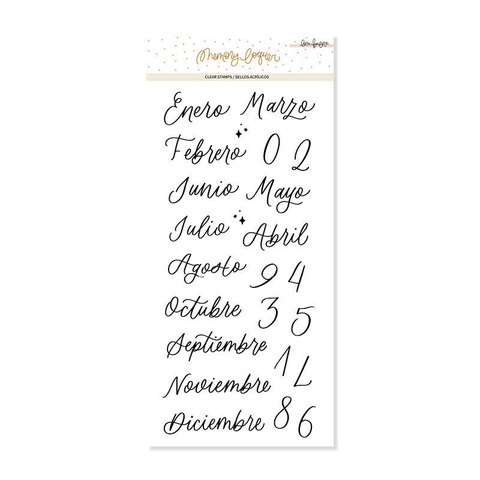 Memory loquer
CLEAR STAMPS / SELLOS ACRÍLICOS
Enero Marzo
Febrero 0 2
Junio Mayo
Julio Abril
Agosto 9 4
Octubre 3 5
Septiembre
Noviembre 1
Diciembre 8 6